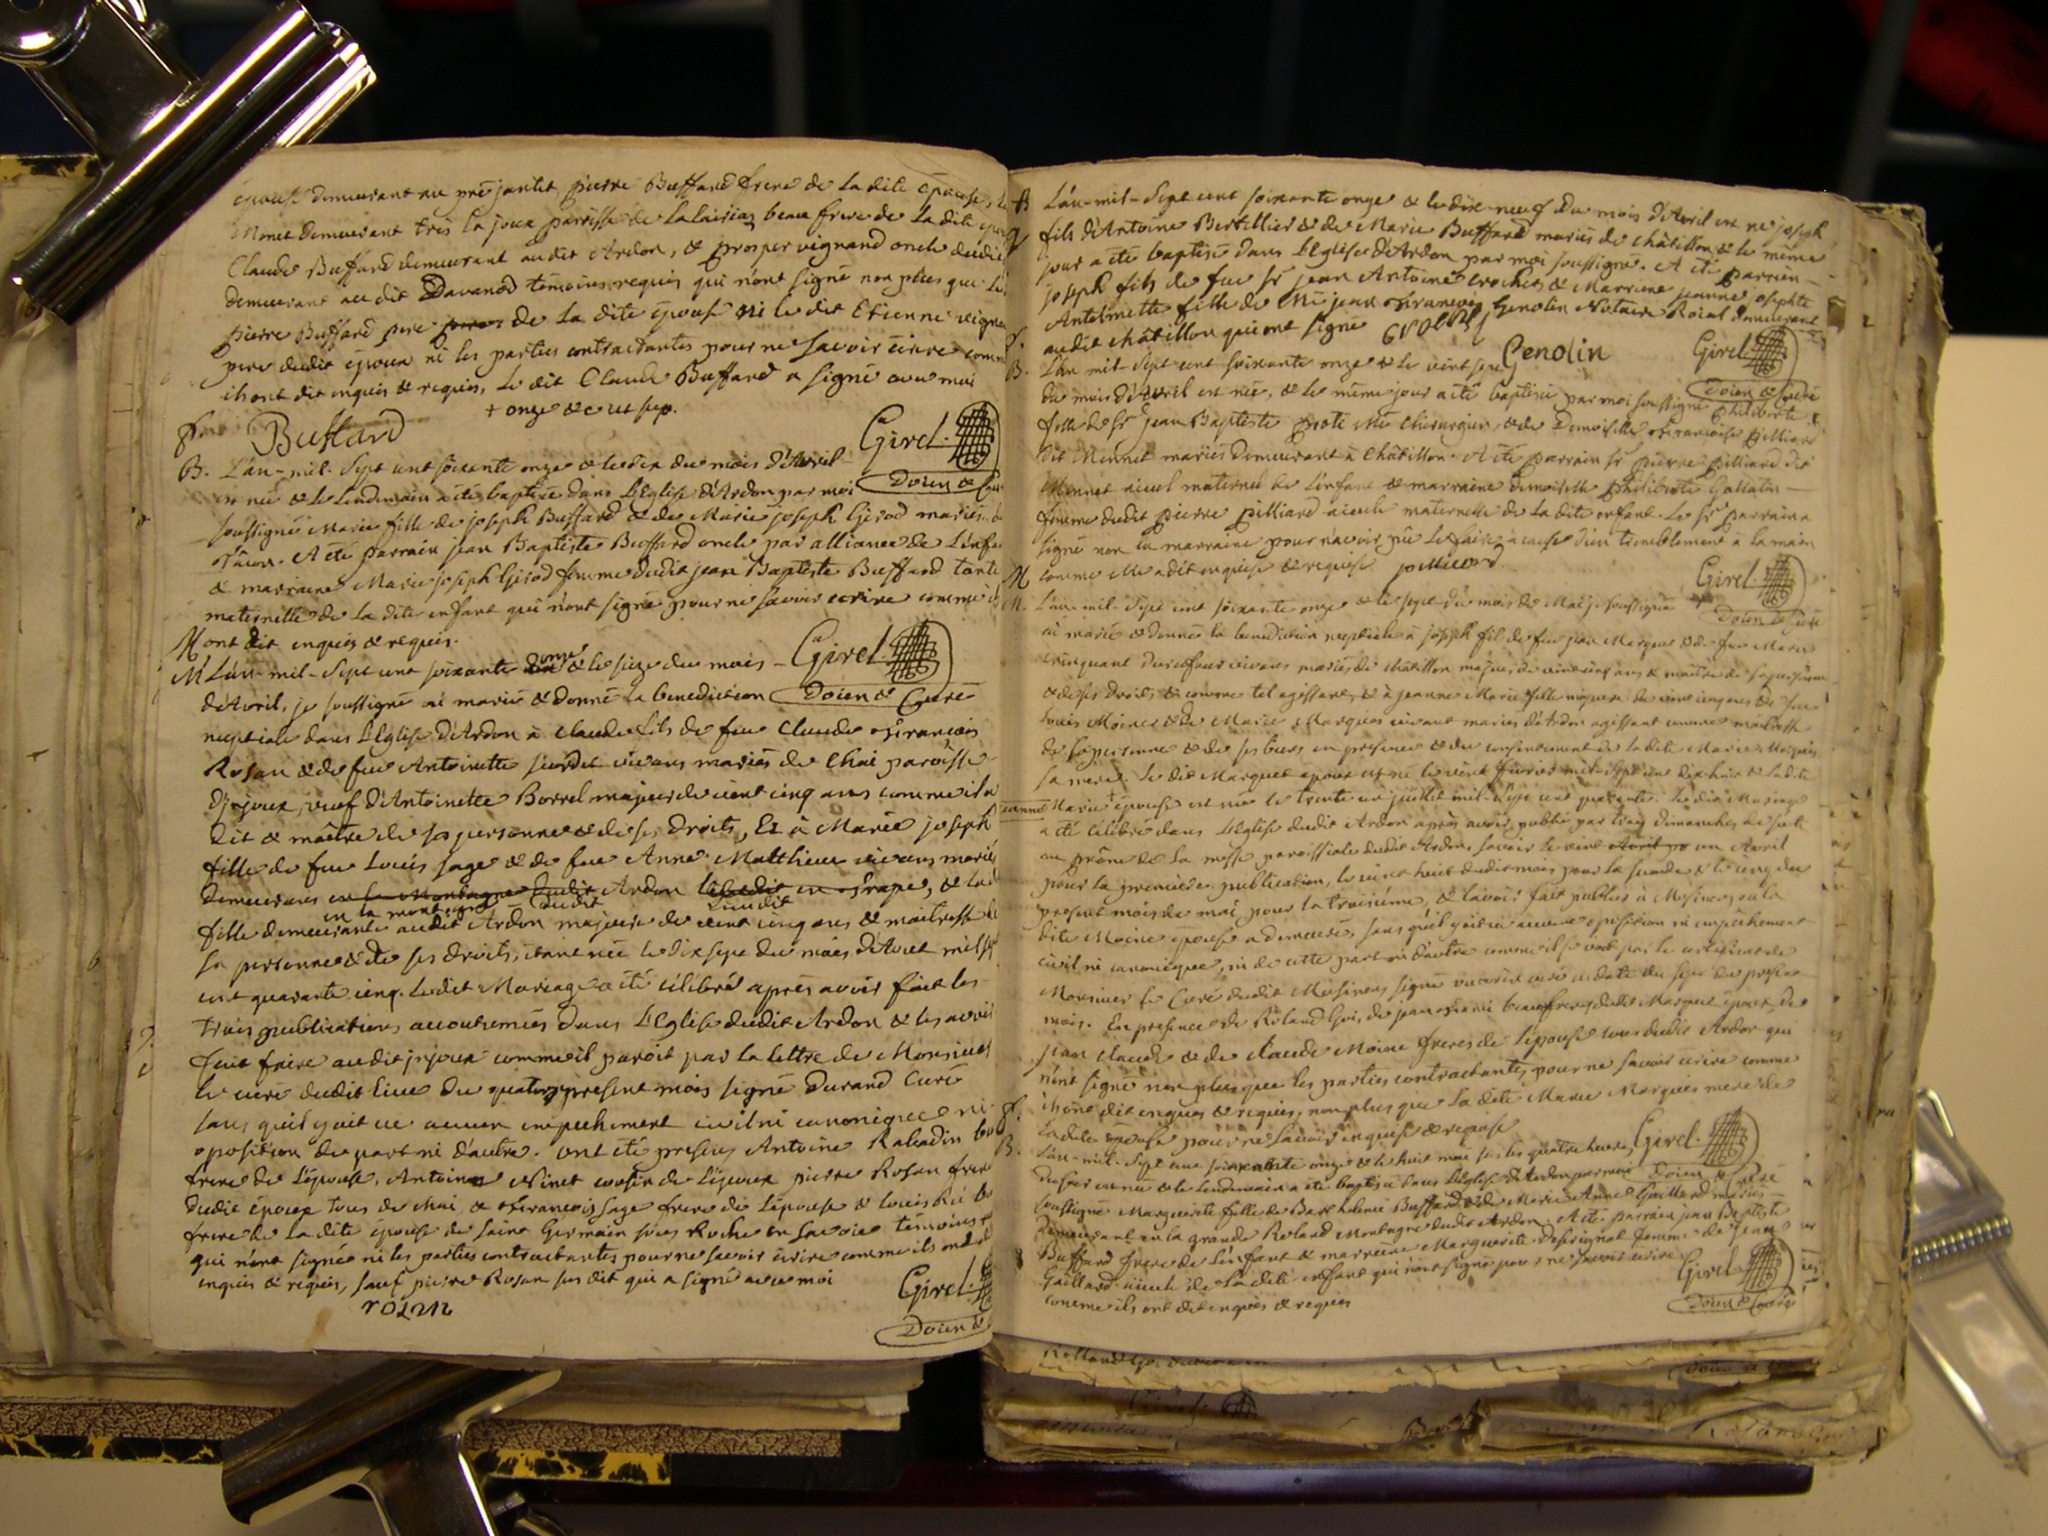 épouse demeurant au pré jantet, pierre Buffard frere de la dite épouse,
Monet demeurant tres la joux parroisse de Lalaisia, beau frere de la dite
Claude Buffard demeurant audit Ardon, & prosper vignand oncle dudit
demeurant au dit Davanod témoins requis qui n'ont signé non plus que
pierre Buffard pere de la dite épouse ni le dit Etienne
pere dudit époux ni les parties contractantes pour ne savoir écrire comme
ils ont dit enquis & requis, le dit Claude Buffard a signé avec moi
+ onze
Buffard
Girel
Doien &
B. L'an-mil-Sept cent soixante onze & le dix du mois d'Avril
est née & le lendemain a été baptisée dans l'Eglise d'Ardon par moi
soussigné Marie fille de joseph Buffard & de Marie joseph Girod mariés
A été parrain jean Baptiste Buffard oncle par alliance de l'enfa
& marraine Marie joseph Girod femme dudit jean Baptiste Buffard tante
maternelle de la dite enfant qui n'ont signé pour ne savoir écrire comme
ont dit enquis & requis.
Girel
Doien & Curé
M L'an-mil-Sept cent soixante onze & le seize du mois
d'Avril, je soussigné ai marié & donné la benediction
nuptiale dans l'Eglise d'Ardon à Claude fils de feu Claude François
Rosan & de feu Antoinette vivans mariés de Chai paroisse
d'jsjoux, veuf d'Antoinette Borrel majeur de vient cinq ans comme il a
dit & maître de sa personne & de ses droits, Et à Marie joseph
fille de feu Louis sage & de feue Anne Matthieu vivans mariés
demeurans en la Montagne dudit Ardon & la
en la montagne dudit
fille demeurante audit Ardon majeure de vient cinq ans & maitresse de
sa personne & de ses droits, étant née le dix sept du mois d'Aout mil sept
cent quarante cinq. Ledit Mariage a été célébré après avoir fait les
trois publications accoutumées dans l'Eglise dudit Ardon & les avoir
fait faire audit jsjoux comme il paroit par la lettre de Monsieur
le curé dudit lieu du quatorze present mois signé Durand Curé
sans qu'il y ait eu aucun empechement civil ni canonique ni
opposition de part ni d'autre. ont été presens Antoine Rabadin beau
frere de l'épouse, Antoine Ninet cousin de l'époux pierre Rosan frere
dudit époux tous de Chai, & François sage frere de l'épouse & Louis
frere de la dite épouse de saint Germain sur Roche en Savoie temoins
qui n'ont signé ni les parties contractantes pour ne savoir écrire comme ils ont
enquis & requis, sauf pierre Rosan susdit qui a signé avec moi
rosan
Girel
Doien &
B L'an-mil-Sept cent soixante onze & le dix-neuf du mois d'Avril est né joseph
fils d'Antoine Bertellier & de Marie Buffard mariés de châtillon & le même
jour a été baptisé dans l'Eglise d'Ardon par moi soussigné. A été parrain
joseph fils de feu Sr jean Antoine Crochet & Marraine jeanne josephte
Antoinette fille de Me jean François Genolin Notaire Roial demeurant
audit châtillon qui ont signé
Genolin
Girel
Doien & Curé
B. L'an mil-Sept cent soixante onze & le vient sept
du mois d'Avril est née, & le même jour a été baptisée par moi soussigné philiberte
fille de Sr jean Baptiste prote Me Chirurgien & de Demoiselle Françoise pilliard
dit Monnet mariés demeurant à Châtillon. A été parrain Sr pierre pilliard dit
Monnet aieul maternel de l'enfant & marraine demoiselle philiberte
femme dudit pierre pilliard aieule maternelle de la dite enfant. Le Sr parrain a
signé non la marraine pour n'avoir pû le faire à cause d'un tremblement à la main
comme elle a dit enquise & requise
pilliard
Girel
Doien & Curé
M. L'an-mil-Sept cent soixante onze & le sept du mois de Mai je soussigné
ai marié & donné la benediction nuptiale à joseph fils de feu jean Marquet & de feu Marie
vivans mariés de châtillon majeur de vient cinq ans & maitre de sa personne
& de ses droits & comme tel agissant, & à jeanne Marie fille majeure de vient cinq ans de feu
Louis Moine & de Marie Marquis vivant mariés d'Ardon agissant comme maitresse
de sa personne & de ses biens en presence & du consentement de la dite Marie Marquis
sa mere. Le dit Marquet époux est né le vient février mil-Sept cent dix huit & la dite
jeanne Marie épouse est née le trente un juillet mil-Sept cent quarante. Le dit Mariage
a été célébré dans l'Eglise dudit Ardon après avoir publié par trois dimanches de suite
au prône de la messe paroissiale dudit Ardon, savoir le vient un Avril
pour la premiere publication, le vient huit dudit mois pour la seconde & le cinq du
present mois de mai pour la troisiéme, & l'avoir fait publier à Musinens où la
dite Moine épouse a demeuré, sans qu'il y ait eu aucune opposition ni empêchement
civil, ni canonique, ni de cette part ni d'autre comme il se voit par le certificat de
Monsieur le Curé dudit Musinens signé curé en date du sept du present
mois. En presence de Roland Goi, de jean beau frere dudit Marquet époux, de
jean Claude & de Claude Moine freres de l'épouse tous dudit Ardon qui
n'ont signé non plus que les parties contractantes pour ne savoir écrire comme
ils ont dit enquis & requis, non plus que la dite Marie Marquis mere de
la dite épouse pour ne savoir enquise & requise
Girel
Doien & Curé
B. L'an-mil-Sept cent soixante onze & le huit mai sur les quatre heures
du soir est née & le lendemain a été baptisée dans l'Eglise d'Ardon par moi
soussigné Marguerite fille de Barthelemi Buffard & de Marie Anne Gaillard mariés
demeurant en la grande Roland Montagne dudit Ardon. A été parrain jean Baptiste
Buffard frere de l'enfant & marraine Marguerite femme de
Gaillard aieule de la dite enfant qui n'ont signé pour ne savoir écrire
comme ils ont dit enquis & requis
Girel
Doien & Curé